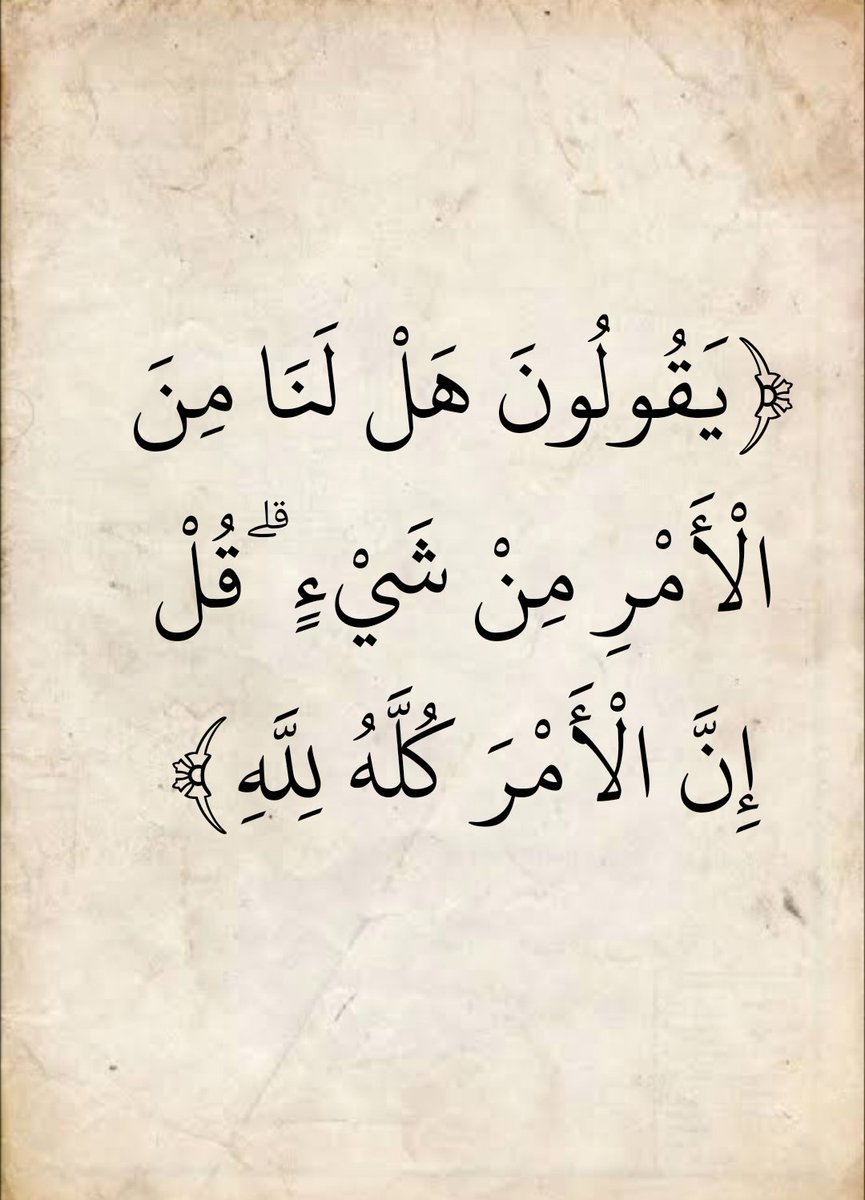 ﴿يَقُولُونَ هَلْ لَنَا مِنَ
الْأَمْرِ مِنْ شَيْءٍ ۗ قُلْ
إِنَّ الْأَمْرَ كُلَّهُ لِلَّهِ﴾